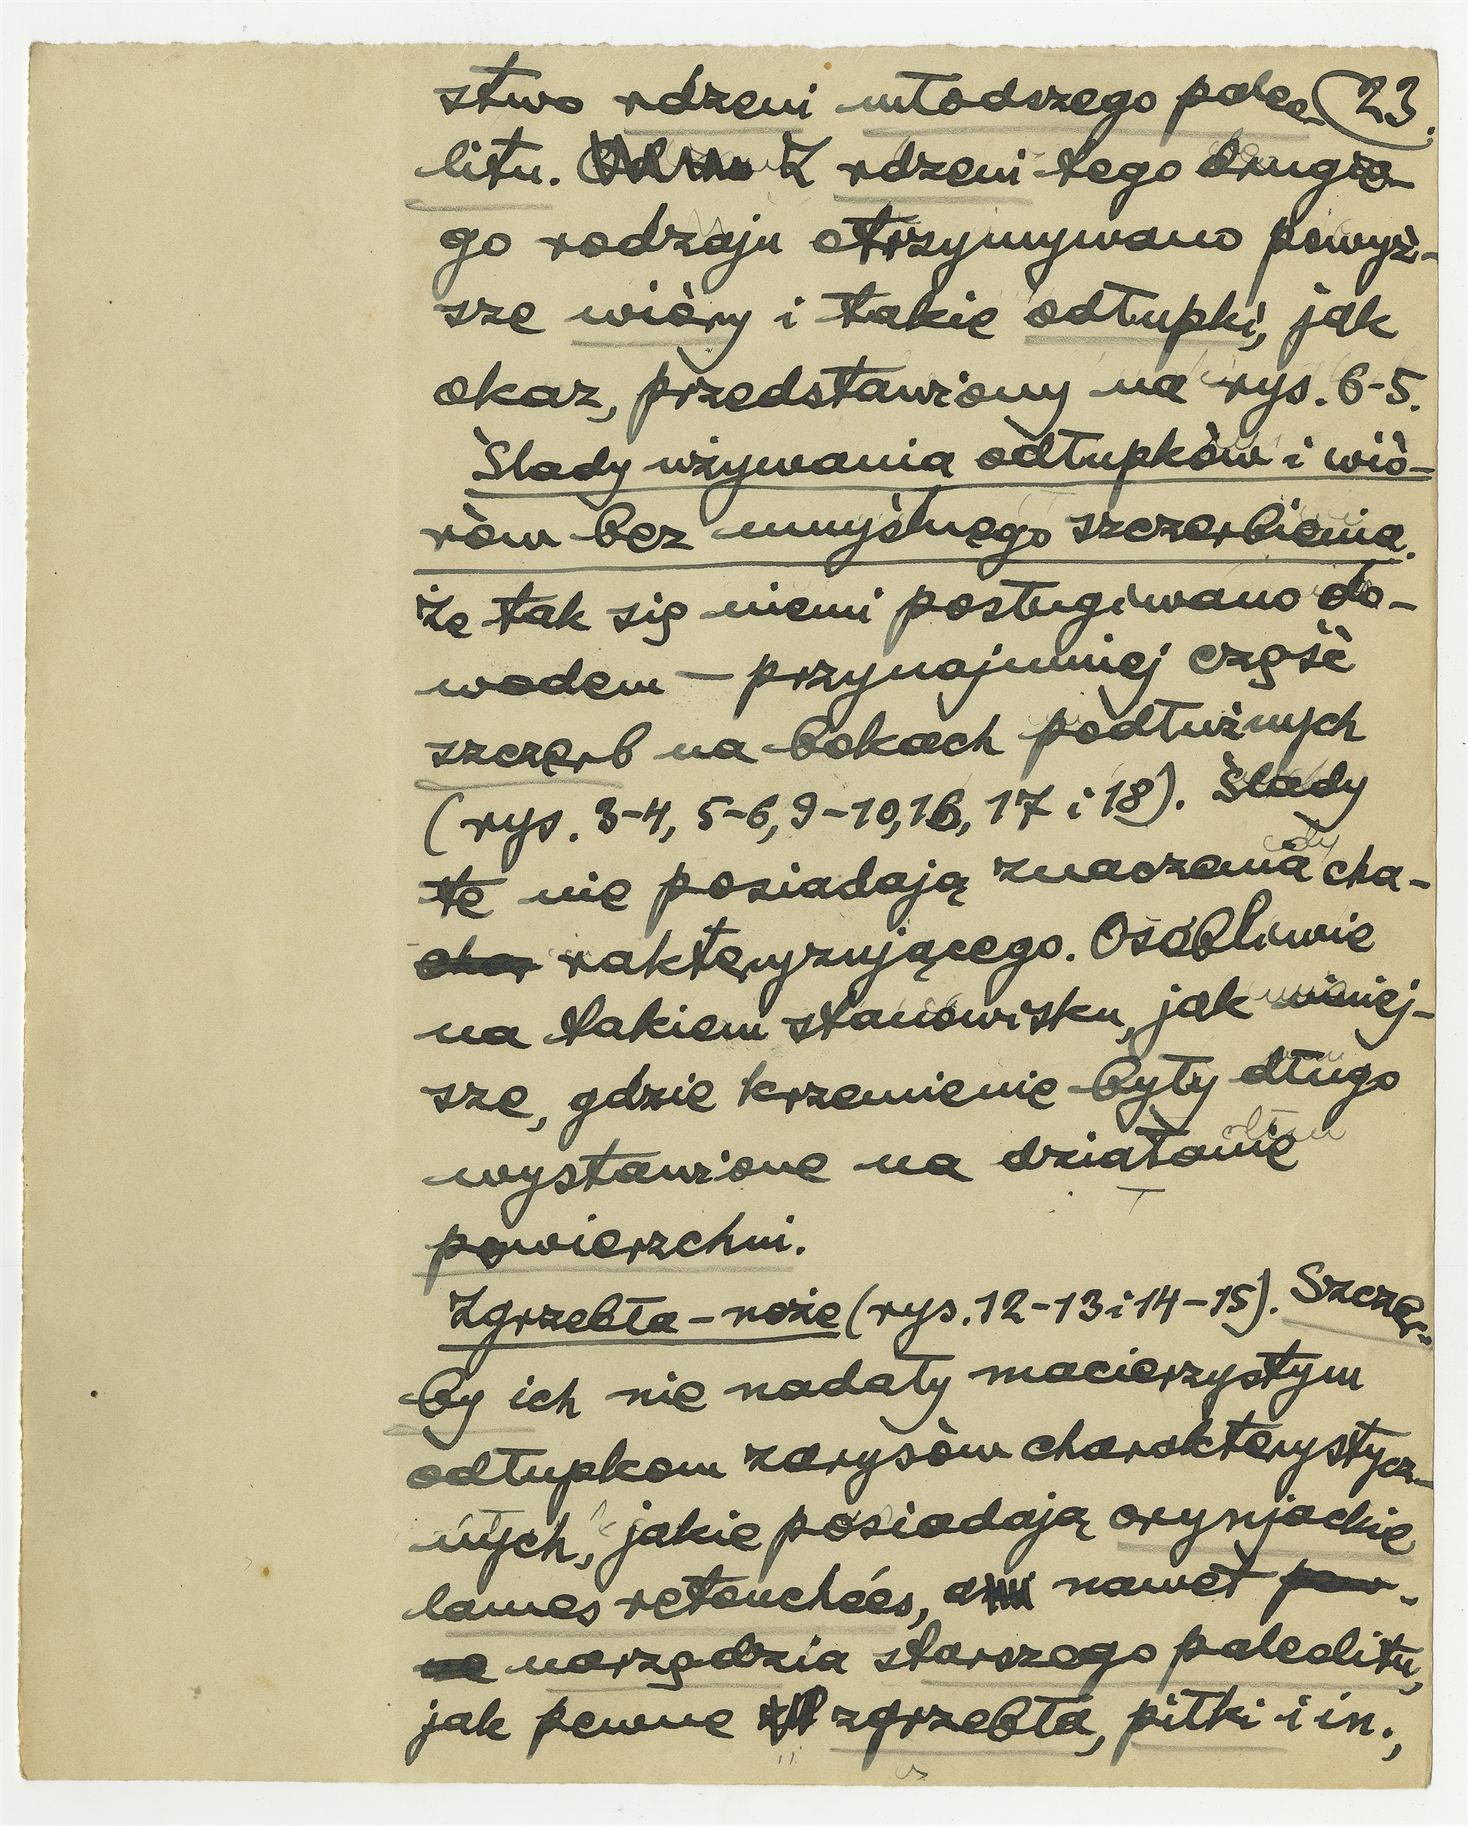 stwo rdzeni młodszego paleo- 23.
litu. Z rdzeni tego drugie-
go rodzaju otrzymywano powyż-
sze wióry i takie odłupki, jak
okaz, przedstawiony na rys. 6-5.
Ślady używania odłupków i wió-
rów bez umyślnego szczerbienia.
Że tak się niemi posługiwano do-
wodem – przynajmniej część
szczerb na bokach podłużnych
(rys. 3-4, 5-6, 9-10, 16, 17 i 18). Ślady
te nie posiadają znaczenia cha-
char rakteryzującego. Osobliwie
na takiem stanowisku, jak niniej-
sze, gdzie krzemienie były długo
wystawione na działanie
powierzchni.
Zgrzebła – noże (rys. 12-13 i 14-15). Szczer-
by ich nie nadały macierzystym
odłupkom zarysów charakterystycz-
nych, jakie posiadają orynjackie
lames retouchées, a nawet pew-
ne narzędzia starszego paleolitu,
jak pewne zgrzebła, piłki i in.,